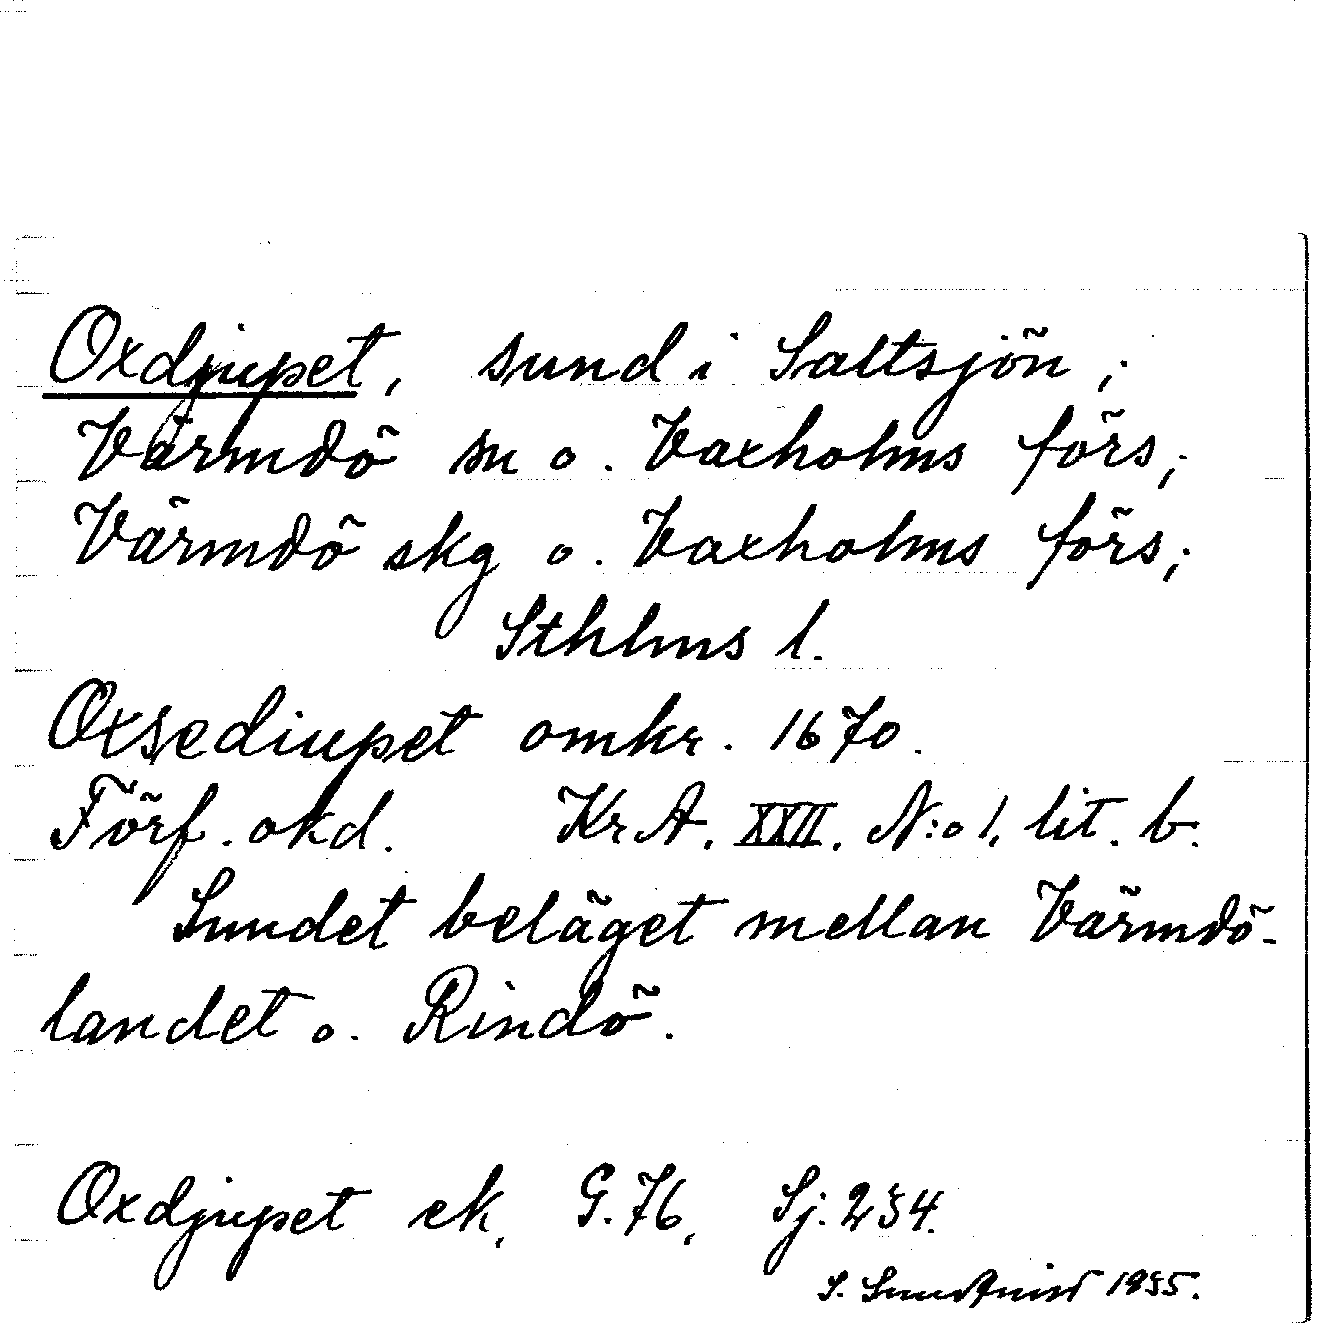 Oxdjupet, sund i Saltsjön;
Värmdö sn o. Vaxholms förs;
Värmdö skg o. Vaxholms förs;
Sthlms l.
Oxsediupet omkr. 1670.
Förf. okd. KrA. XXII. N:o 1. lit. b.
Sundet beläget mellan Värmdö-
landet o. Rindö.
Oxdjupet ek. G.76. Sj. 234.
S. Sundqvist 1935.